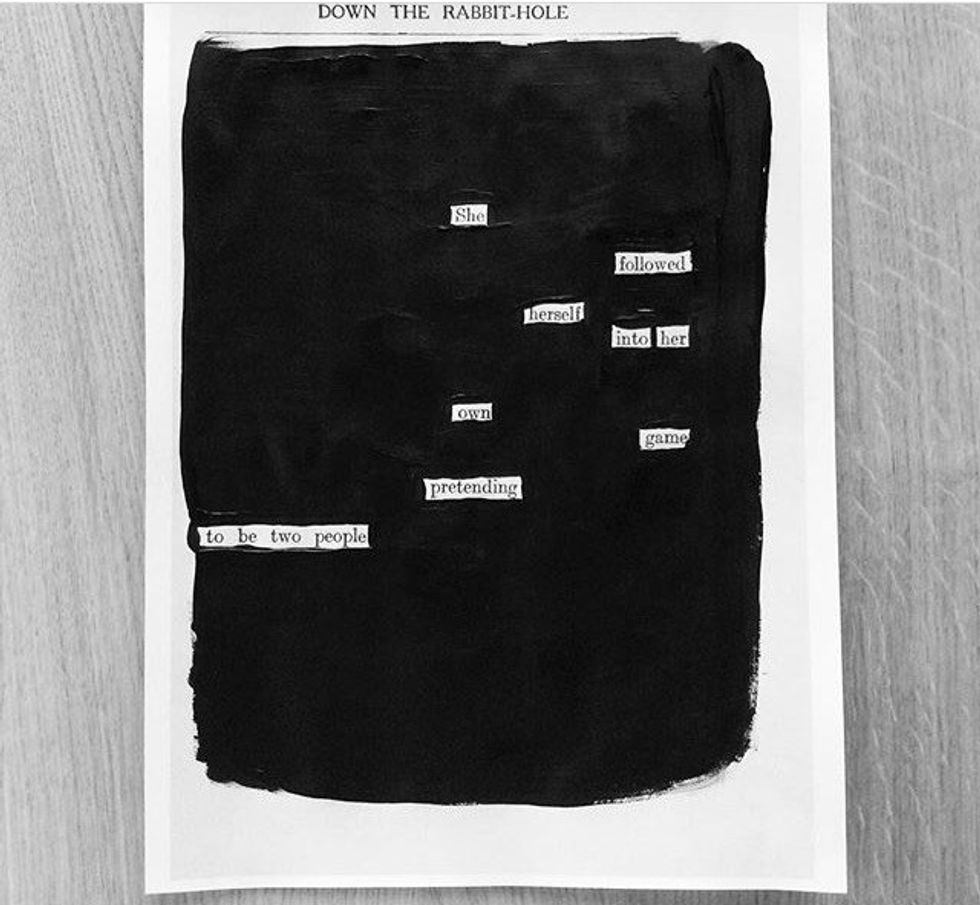 DOWN THE RABBIT-HOLE
She
followed
herself
into her
own
game
pretending
to be two people